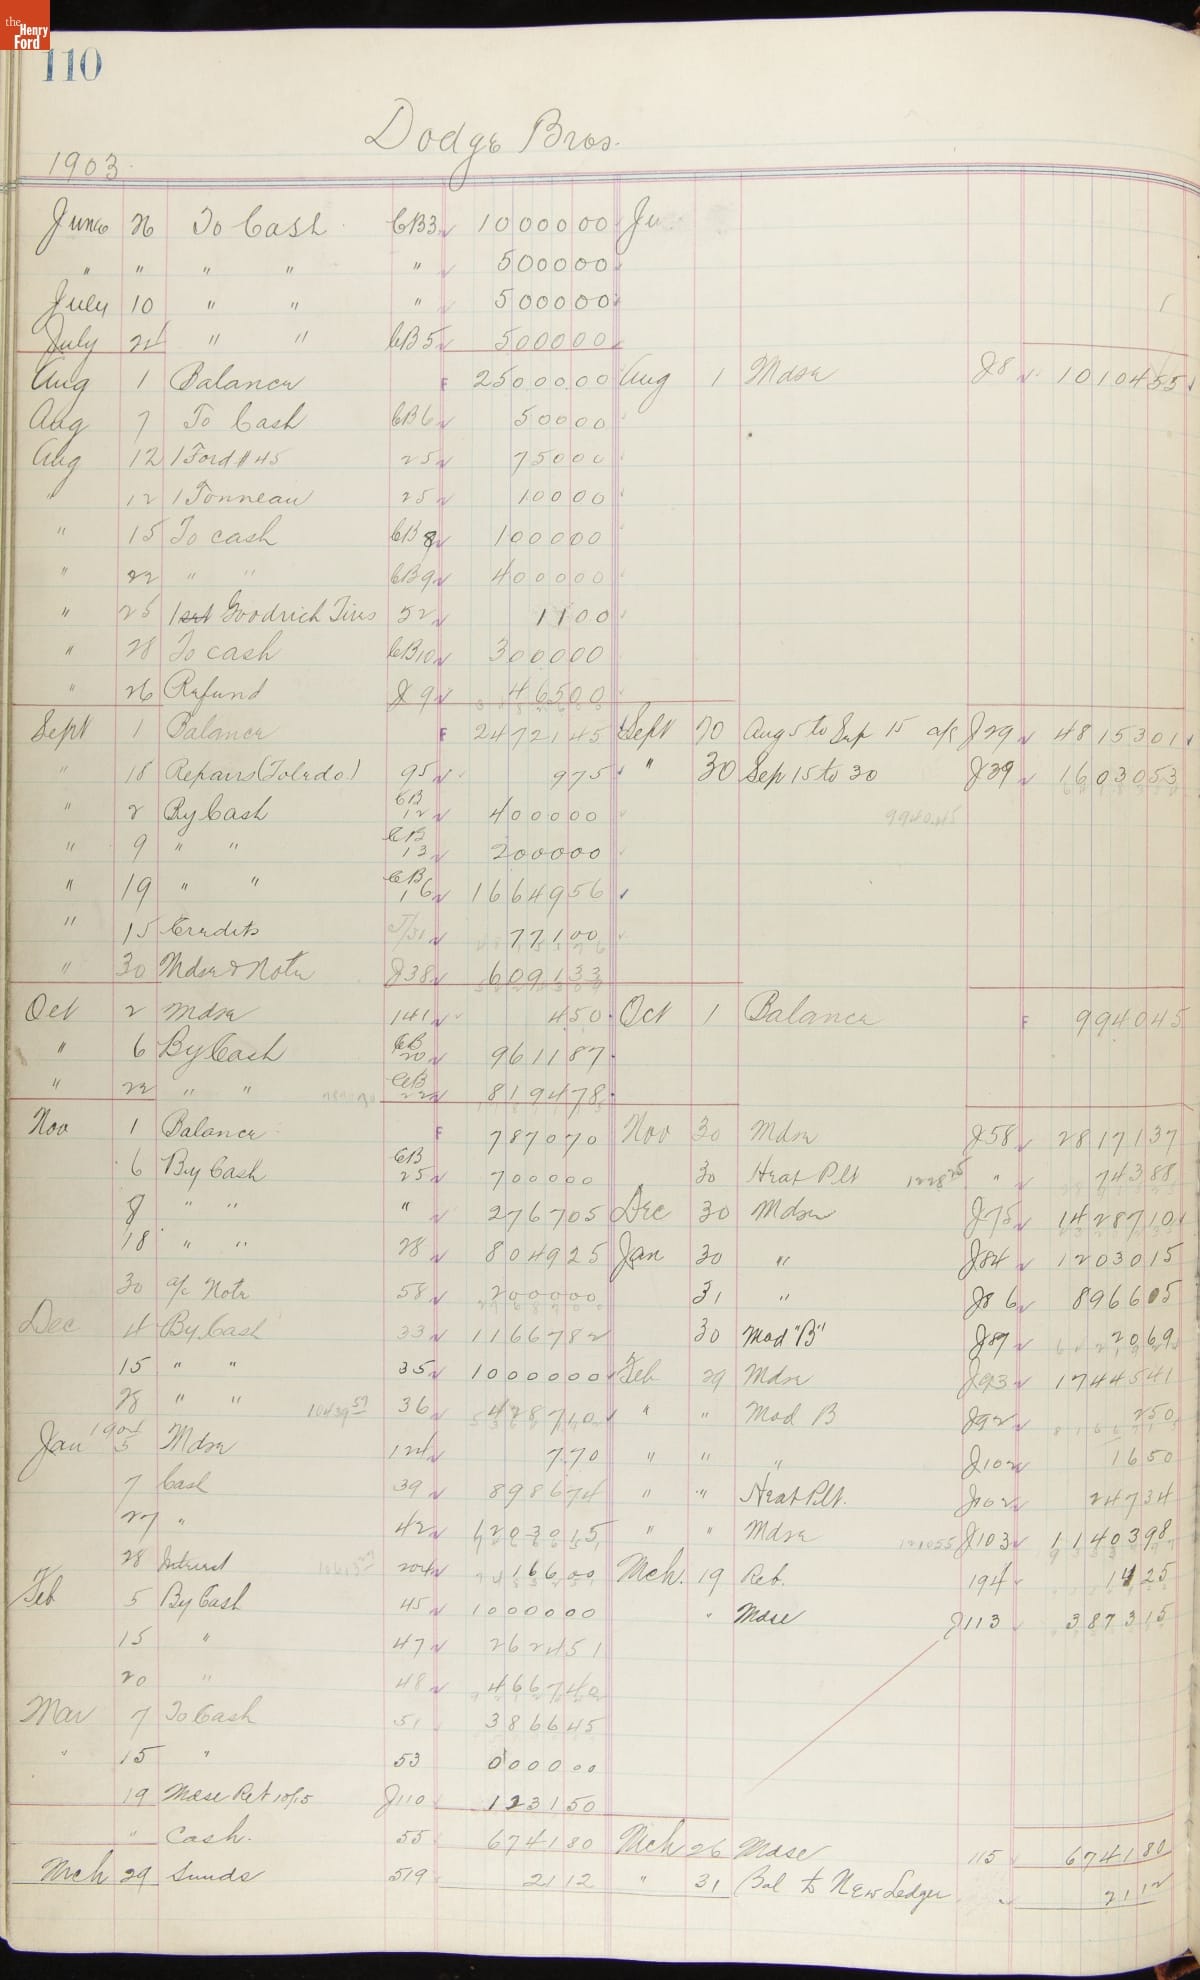 the Henry Ford
110
Dodge Bros.
1903
June 26 To Cash CB3 1000000 Ju
" " " " " 500000
July 10 " " " 500000
July 24 " " CB5 500000
Aug 1 Balance F 2500000 Aug 1 Mdse J8 1010455
Aug 7 To Cash CB6 50000
Aug 12 1 Ford #45 25 75000
" 12 1 Tonneau 25 10000
" 15 To cash CB8 100000
" 22 " " CB9 400000
" 25 1 set Goodrich Tires 52 1100
" 28 To cash CB10 300000
" 26 Refund J9 46500
Sept 1 Balance F 2472145 Sept 20 Aug 5 to Sep 15 a/c J29 4815301
" 18 Repairs (Toledo) 95 975 " 30 Sep 15 to 30 J39 1603053
" 2 By Cash CB 12 400000 994045
" 9 " " CB 13 200000
" 19 " " CB 16 1664956
" 15 Credits J/31 77100
" 30 Mdse & Note J38 609133
Oct 2 Mdse 141 450 Oct 1 Balance F 994045
" 6 By Cash CB 20 961187
" 22 " " CB 22 819478
Nov 1 Balance F 787070 Nov 30 Mdse J58 2817137
6 By Cash CB 25 700000 30 Heat Plt 1228 25 " 74388
8 " " " 276705 Dec 30 Mdse J75 1428710
18 " " 28 804925 Jan 30 " J84 1203015
30 a/c Note 58 200000 31 " J86 896605
Dec 4 By Cash 33 1166782 30 Mod "B" J87 2069
15 " " 35 1000000 Feb 29 Mdse J93 1744541
28 " " 10439 59 36 428710 " " Mod B J92 250
Jan 1904 5 Mdse 124 770 " " " J102 1650
7 Cash 39 898674 " " Heat Plt. J102 24734
27 " 42 1203015 " " Mdse J103 1140398
28 Interest 204 16600 Mch. 19 Ret. 194 1425
Feb 5 By Cash 45 1000000 " Mdse J113 387315
15 " 47 262451
20 " 48 466740
Mar 7 To Cash 51 386645
" 15 " 53 000000
19 Mdse Ret 10/15 J110 123150
" Cash. 55 674180 Mch 26 Mdse 115 674180
Mch 29 Sunds 519 2112 " 31 Bal to New Ledger 2112